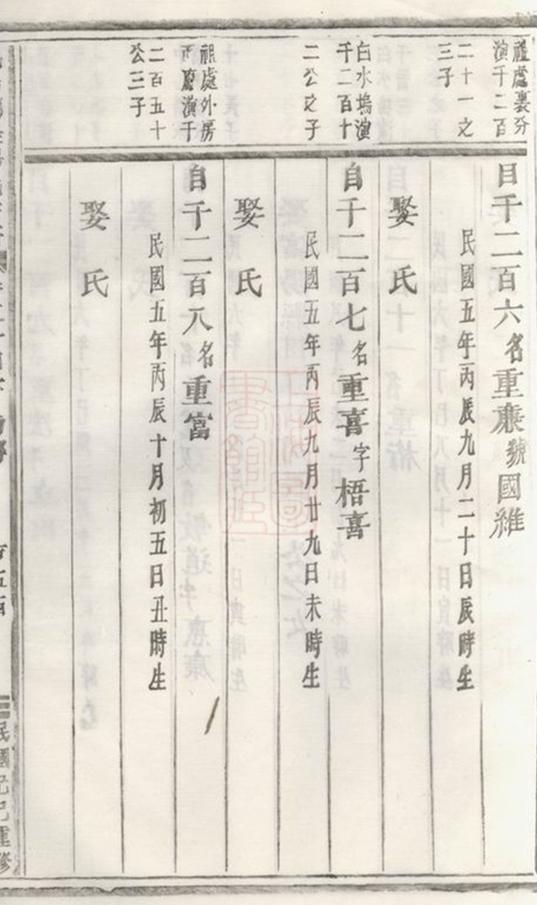 祖處裏分
演千二百
二十一之
三子
自千二百六名重康號國維
民國五年丙辰九月二十日辰時生
娶氏
白水塢演
千二百十
二公之子
自千二百七名重喜字梧喜
民國五年丙辰九月廿九日未時生
娶氏
祖處外房
演千
二百五十
公三子
自千二百八名重富
民國五年丙辰十月初五日丑時生
娶氏
民國己巳重修